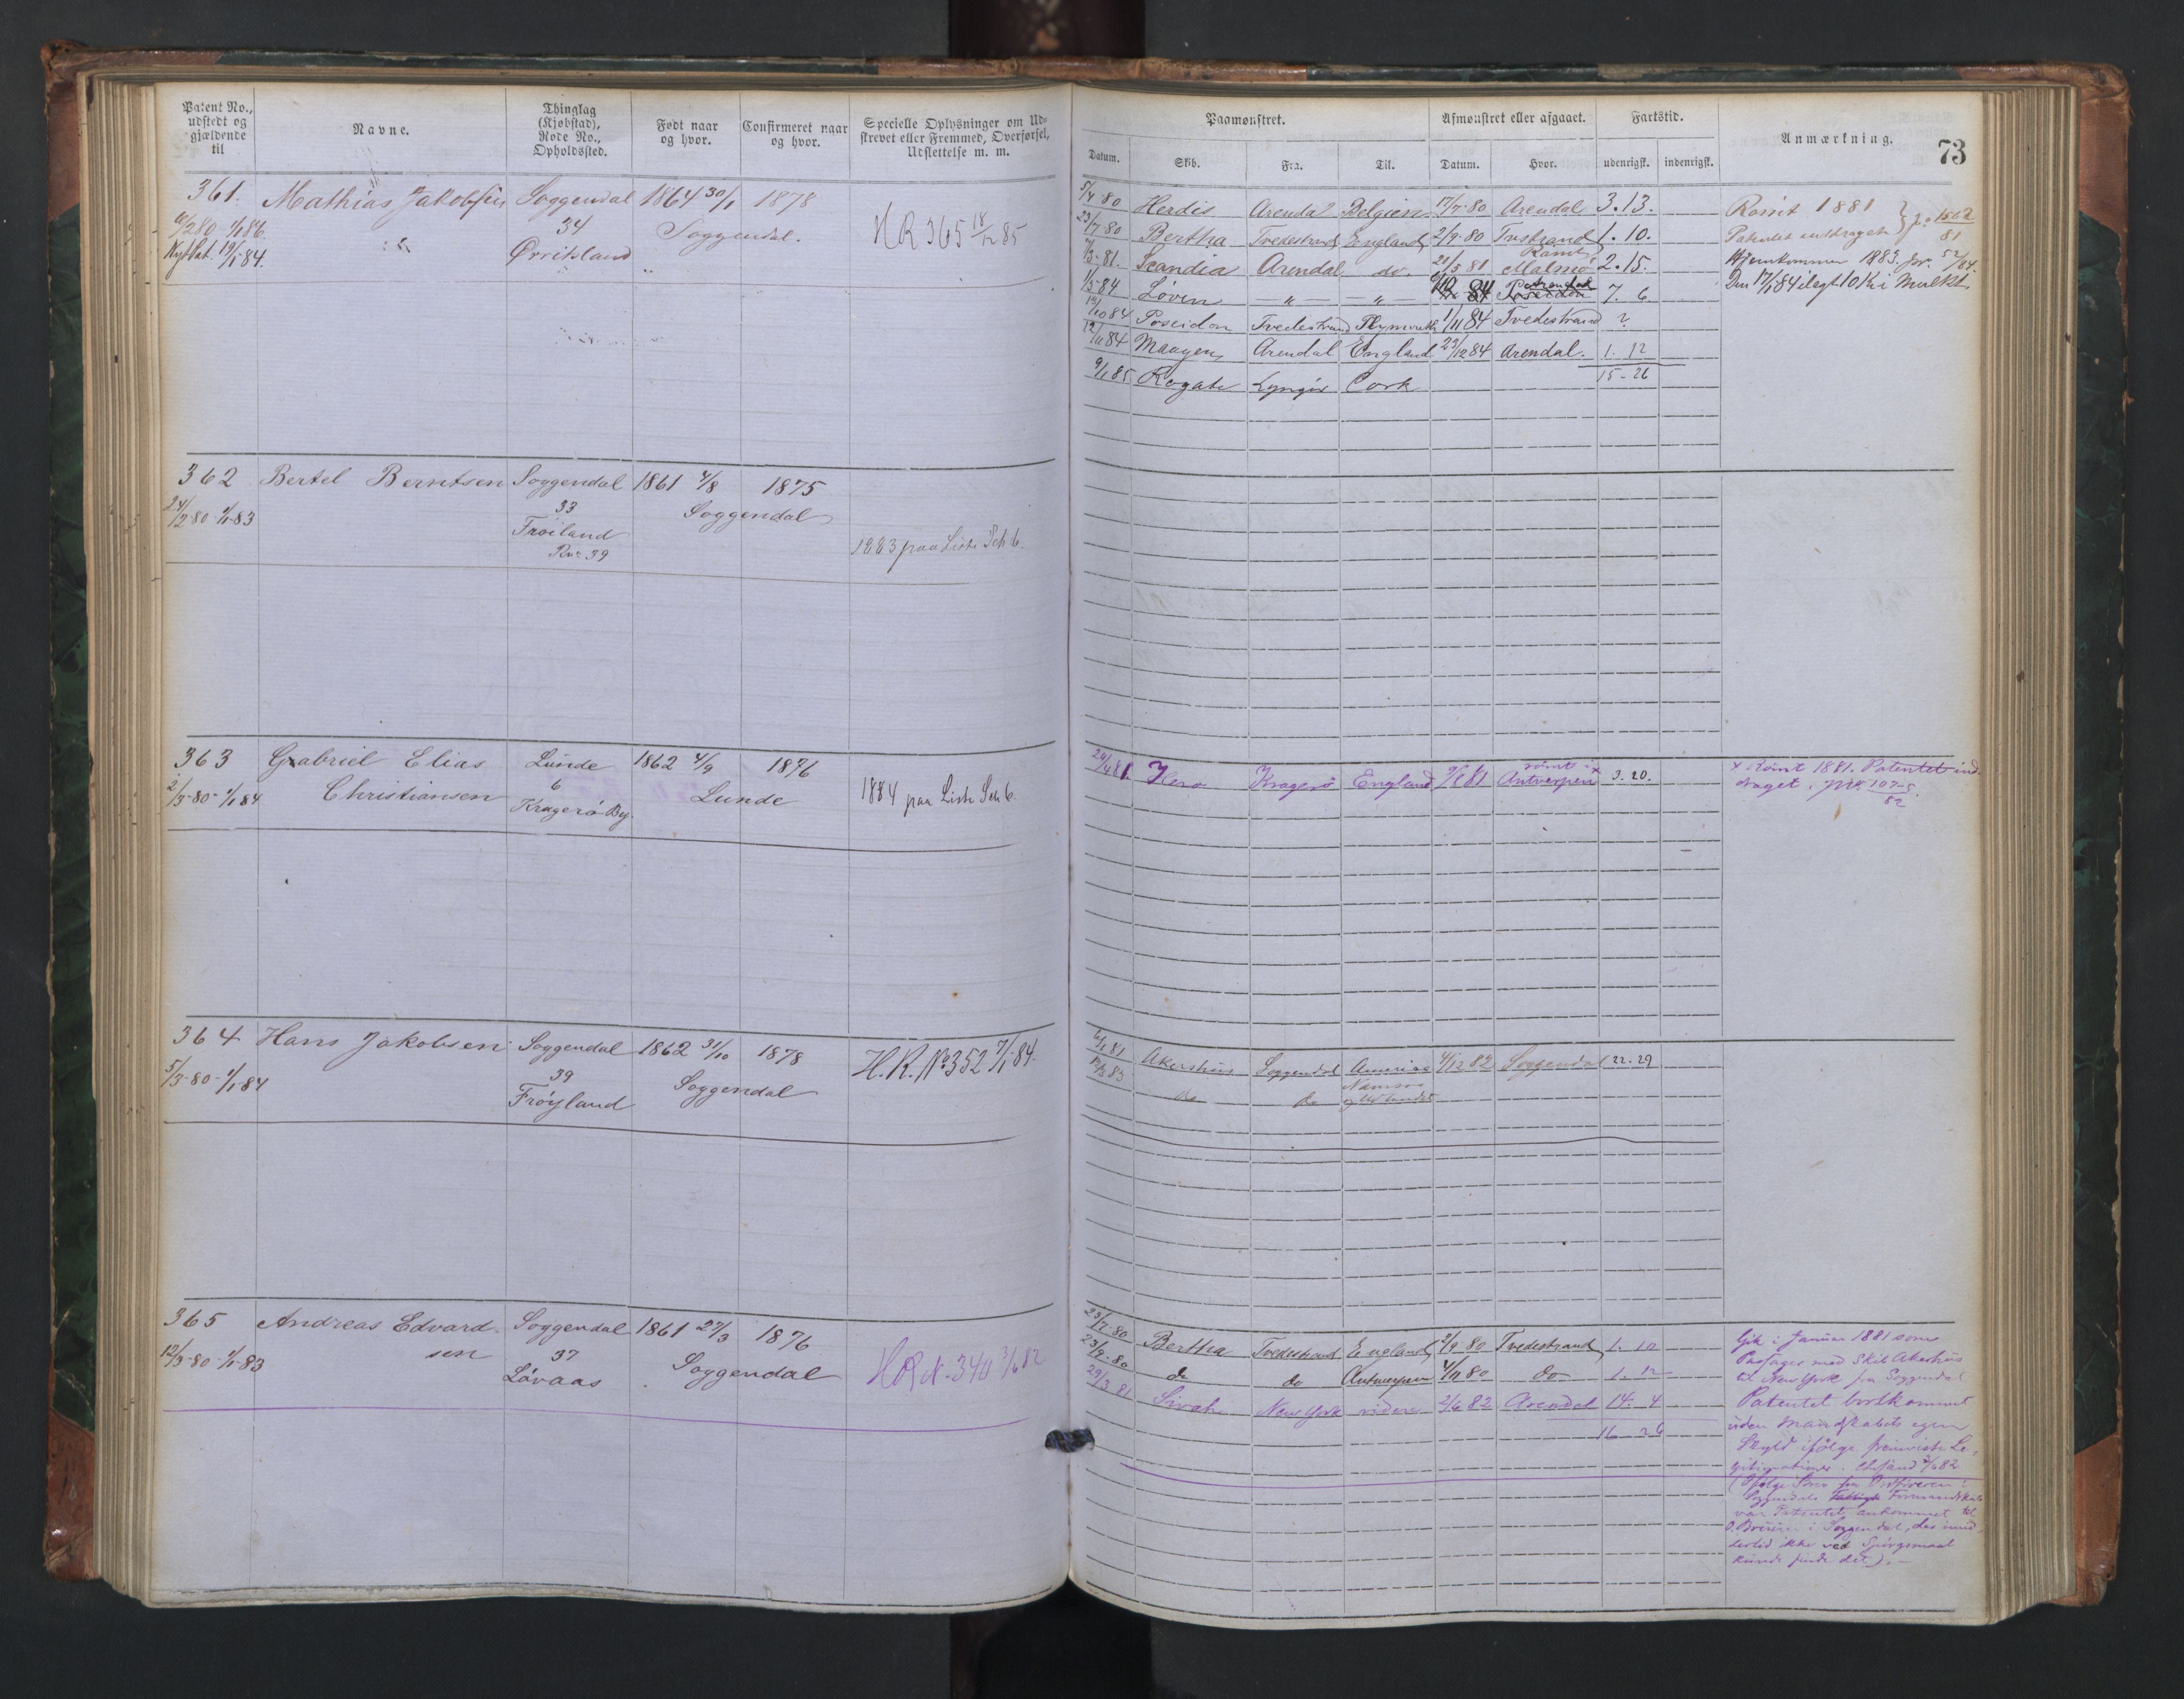 Patent No., udstedt og gjældende til
Navne.
Thinglag (Kjøbstad), Rode No., Opholdssted.
Født naar og hvor.
Confirmeret naar og hvor.
Specielle Oplysninger om Udskrevet eller Fremmed, Overførsel, Udslettelse m. m.
Paamønstret.
Afmønstret eller afgaaet.
Fartstid.
Anmærkning.
73
Datum. Skib. Fra. Til. Datum. Hvor. udenrigsk. indenrigsk.
361. Mathias Jakobsen Soggendal 1864 30/1 1878
34 Soggendal.
Nyt Pat. 19/1 84. Ørritsland
HR 365 18/12 85
5/4 80 Herdis Arendal Belgien 17/7 80 Arendal 3.13.
23/7 80 Bertha Tvedestrand England 2/9 80 Tvestrand 1.10.
Rømt
7/3 81. Scandia Arendal do. 21/5 81 Malmö 2.15.
1/5 84 Løven — „ — — „ — 84 Poseidon Arendal 7. 6
19/10 84 Poseidon Tvedestrand Plymouth 1/11 84 Tvedestrand ?
12/11 84 Maagen Arendal England 23/12 84 Arendal. 1. 12
15-26
9/1 85 Rogate Lyngör Cork
Rømt 1881
Patentet inddraget Jo 1562/81
Hjemkommen 1883. Jor. 52/84.
Den 17/1 84 ilagt 10 Kr i Mulkt.
362 Bertel Berntsen Soggendal 1861 4/8 1875
24/2-80-1/1-83 33 Soggendal
Frøiland
Rno 39
1883 paa Liste Sch 6.
363 Gabriel Elias Lunde 1862 4/9 1876
2/3-80-1/1 84 Christiansen 6 Lunde
Kragerö By.
1884 paa Liste Sch 6.
Hero Kragerö England 81 rømt i Antwerpen × 3.20.
× Rømt 1881. Patentet ind-
draget.
364 Hans Jakobsen Soggendal 1862 31/10 1878
5/3-80-1/1 84 39 Soggendal
Frøyland
H.R. No 352 7/1-84.
6/1 81 Akershus Soggendal America 4/12 82 Soggendal 22.29
Namsos
do do og Udlandet
365 Andreas Edvard- Soggendal 1861 27/3 1876
12/3-80-1/1-83 sen 37 Soggendal
Løvaas
HR N. 340 3/6 82
23/7-80 Bertha Tvedestrand England 2/9 80 Tvedestrand 1. 10
23/9-80 do do Antwerpen 4/11 80 do 1. 12
29/3 81 Sirah New York videre 2/6 82 Arendal 14. 4
16 26
Gik i Januar 1881 som
Passager med Skib Akershus
til New York fra Soggendal
Patentet bortkommet
uden Mandskabets egen
Skyld ifølge fremviste Le-
gitimationer.
Soggendals Formandskab
var Patentet ankommet til
i Soggendal, der imid-
lertid ikke ved Spörgsmaal
kunde finde det).—